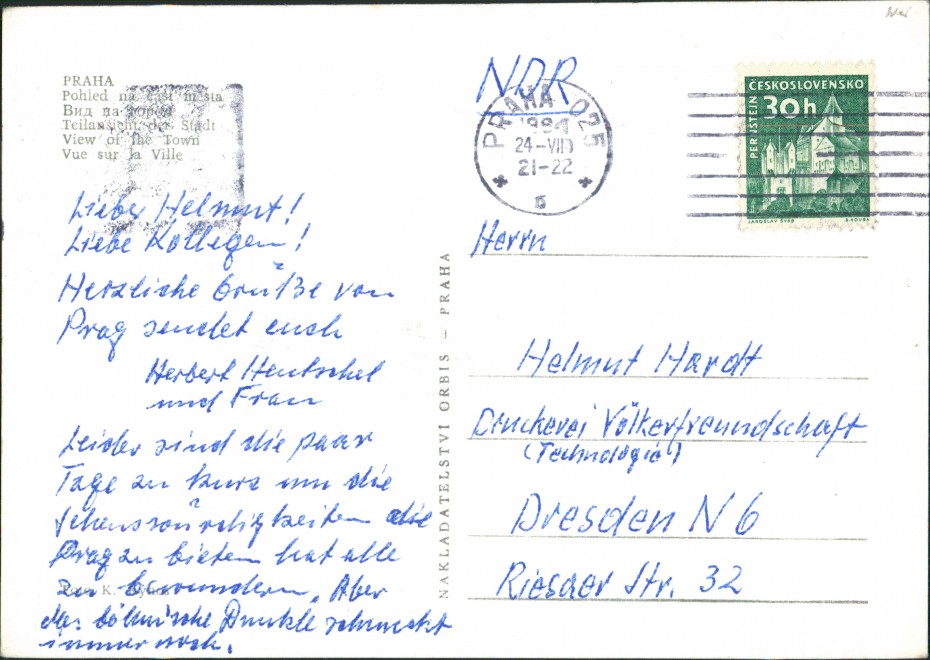 PRAHA
Pohled na část města
Вид на город
Teilansicht der Stadt
View of the Town
Vue sur la Ville
Lieber Helmut!
Liebe Kollegen!
Herzliche Grüße von
Prag sendet euch
Herbert Hentschel
und Frau
Leider sind die paar
Tage zu kurz um die
Sehenswürdigkeiten die
Prag zu bieten hat alle
zu bewundern. Aber
das böhmische Dunkle schmeckt
immer noch.
Foto K.
NAKLADATELSTVÍ ORBIS – PRAHA
NDR
PRAHA 025
24-VIII
21-22
ČESKOSLOVENSKO
30h
PERNŠTEJN
JAROSLAV ŠVÁB
Herrn
Helmut Hardt
Druckerei Völkerfreundschaft
(Technologie)
Dresden N 6
Riesaer Str. 32